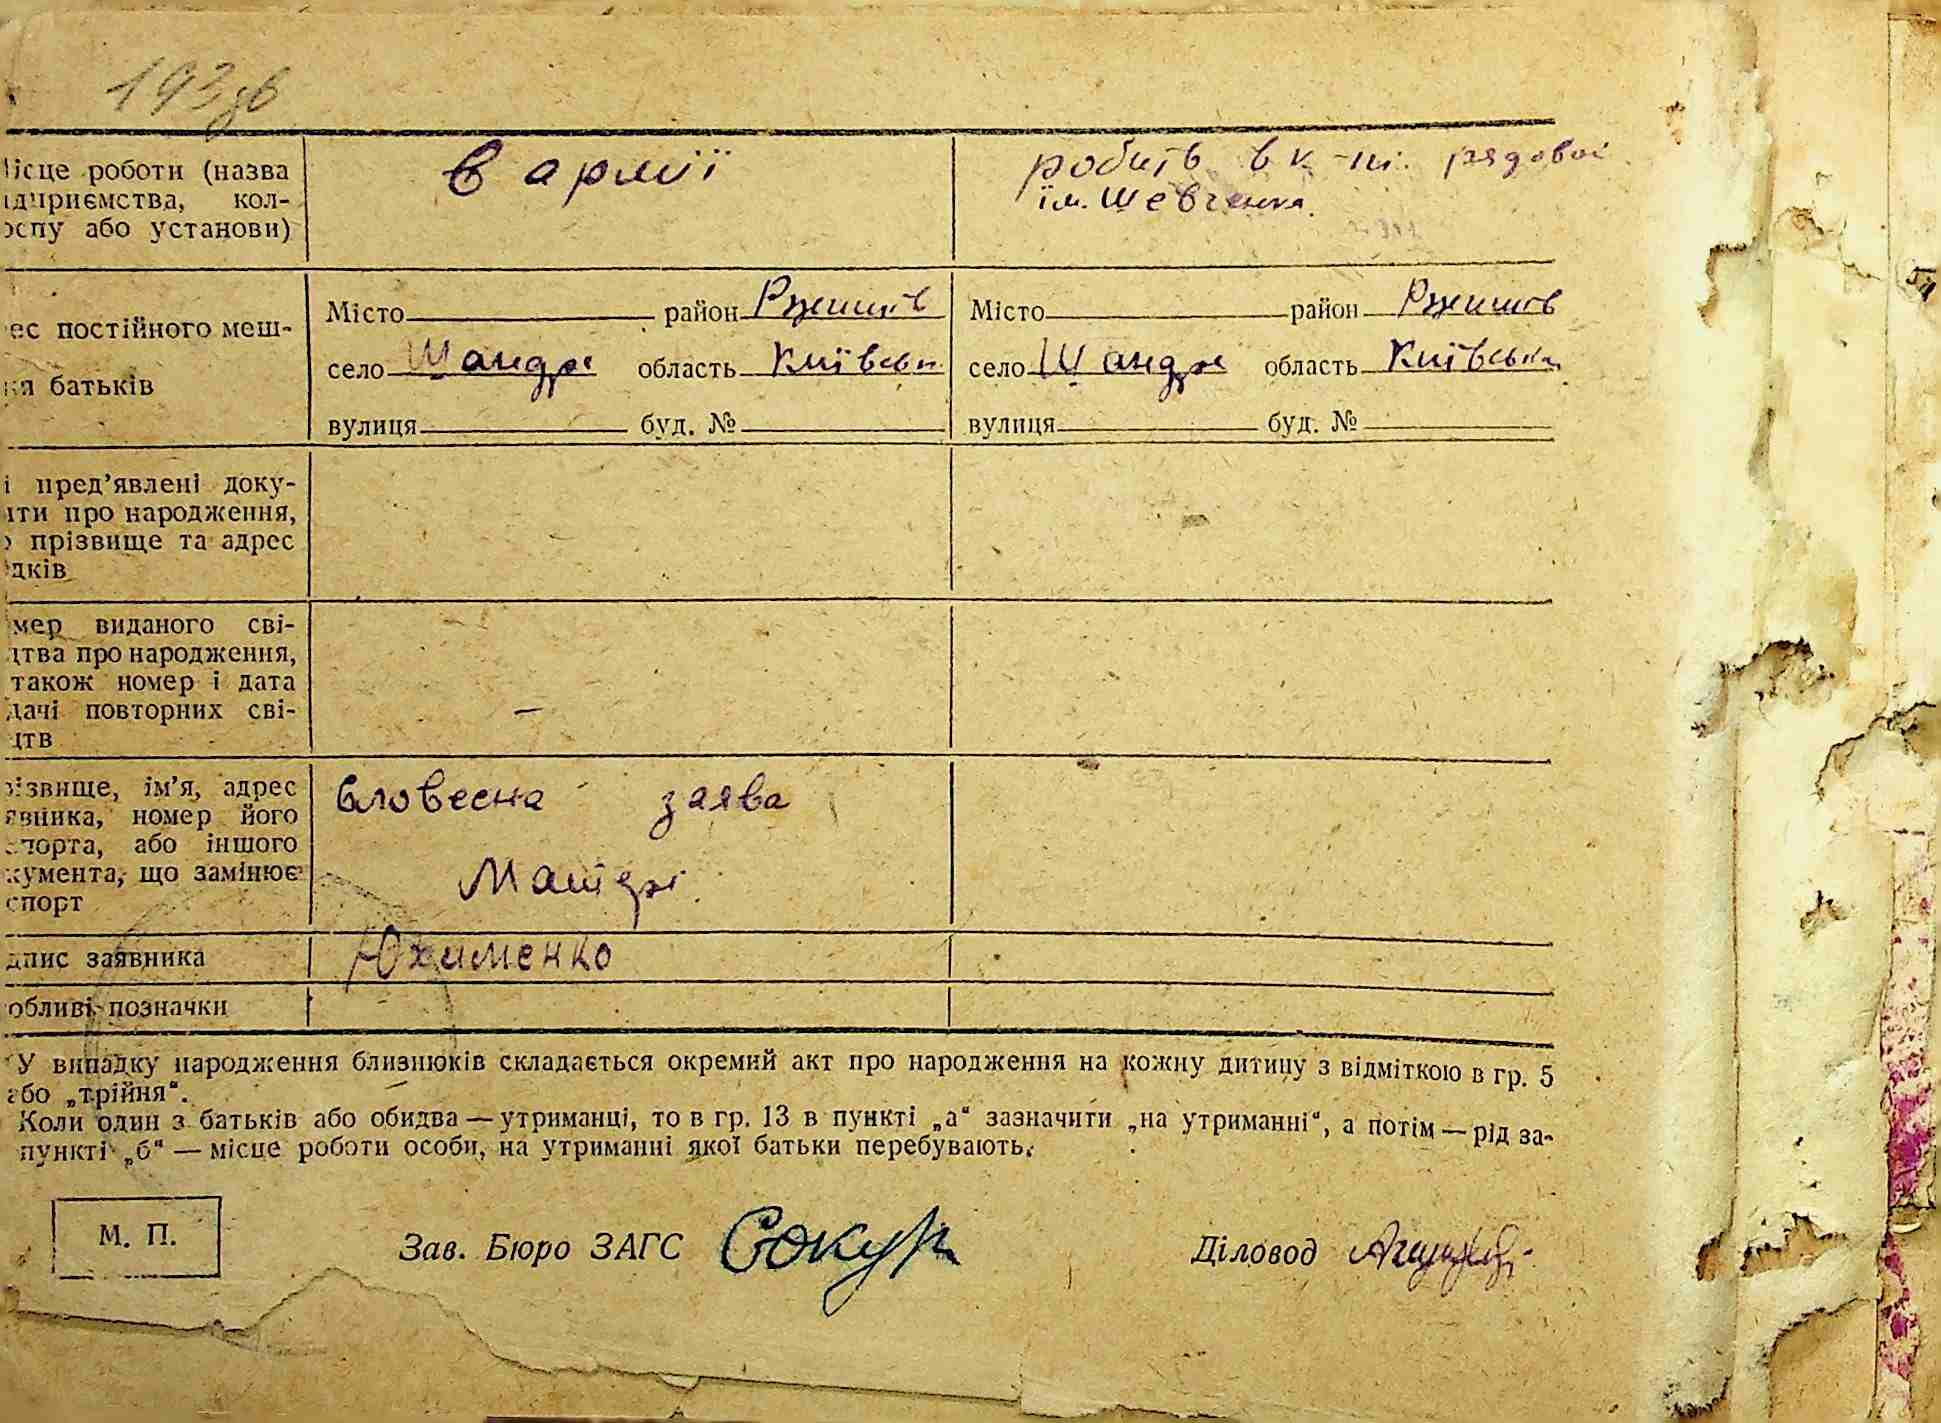 193зв
місце роботи (назва
ідприємства, кол-
оспу або установи)
в армії
робить в к-пі рядової
ім. Шевченка.
ес постійного меш-
ня батьків
Місто район Ржищів
село Шандра область Київська
вулиця буд. №
Місто район Ржищів
село Шандра область Київська
вулиця буд. №
і пред’явлені доку-
нти про народження,
о прізвище та адрес
дків
мер виданого сві-
цтва про народження,
також номер і дата
дачі повторних сві-
цтв
різвище, ім’я, адрес
явника, номер його
спорта, або іншого
кумента, що замінює
спорт
Словесна заява
Матері
дпис заявника
Юхименко
обливі позначки
У випадку народження близнюків складається окремий акт про народження на кожну дитину з відміткою в гр. 5
або „трійня“.
Коли один з батьків або обидва — утриманці, то в гр. 13 в пункті „а“ зазначити „на утриманні“, а потім — рід за-
пункті „б“ — місце роботи особи, на утриманні якої батьки перебувають.
М. П.
Зав. Бюро ЗАГС Сокур
Діловод